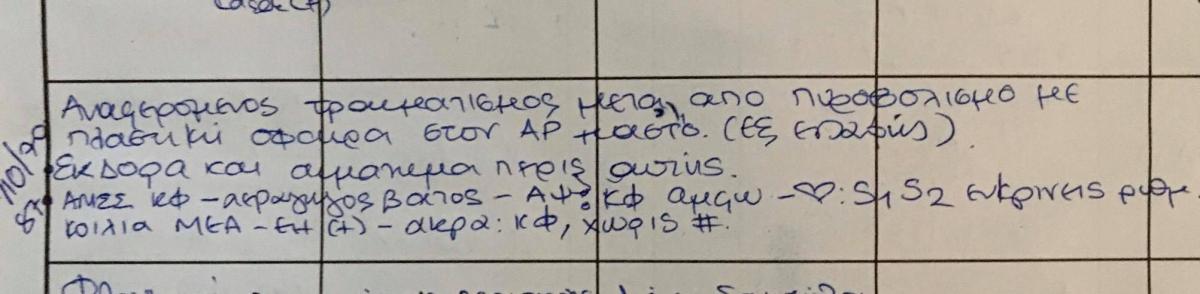 Αναφερομενος τραυματισμος μετα από πυροβολισμο με
πλαστικη σφαιρα στον ΑΡ μαστο. (εξ επαφης)
Εκδορα και αιματωμα περιξ αυτης.
ΑΜΣΣ κφ - ακρωμος βατος - ΑΨ: κφ αμφω - ♡: S1 S2 ευκρινεις ρυθμ
κοιλια ΜΕΑ - ΕΗ (+) - ακρα: κφ, χωρις #.